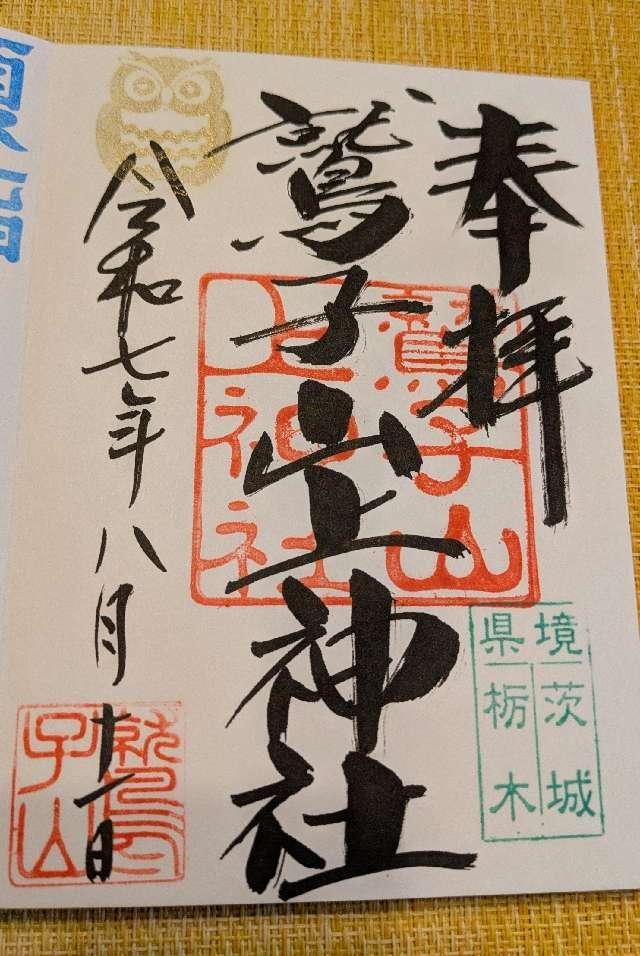 奉拝
鷲子山上神社
令和七年八月十一日
鷲子山
上神社
境
県
茨城
栃木
鷲
子山